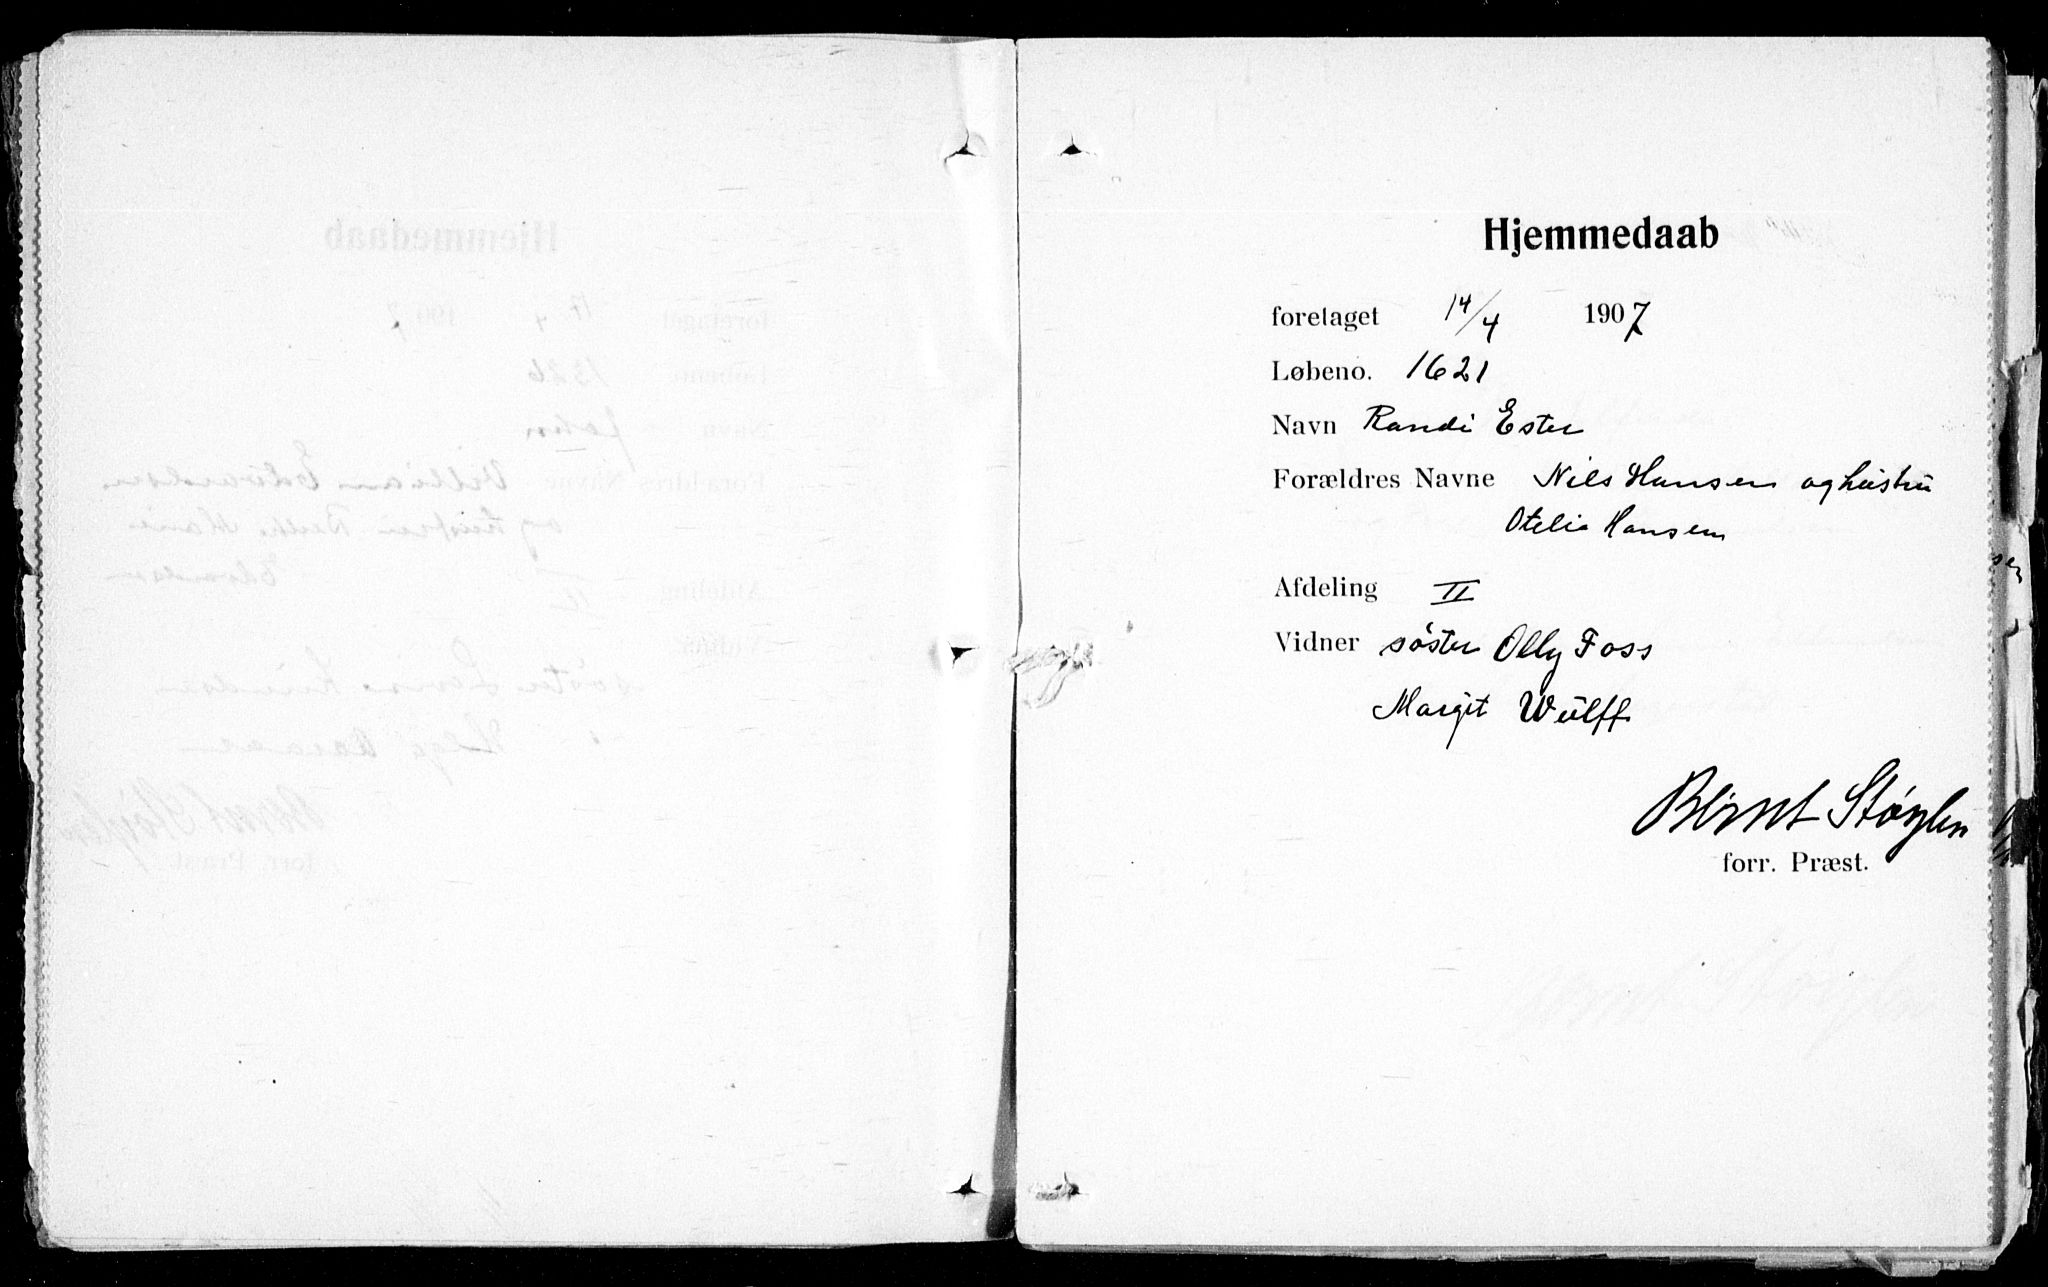 Hjemmedaab
foretaget 14/4 1907
Løbeno. 1621
Navn Randi Ester
Forældres Navne Nils Hansen og hustru
Otelie Hansen
Afdeling II
Vidner søster Olly Foss
Margit Wulff
Bernt Støylen
forr. Præst.